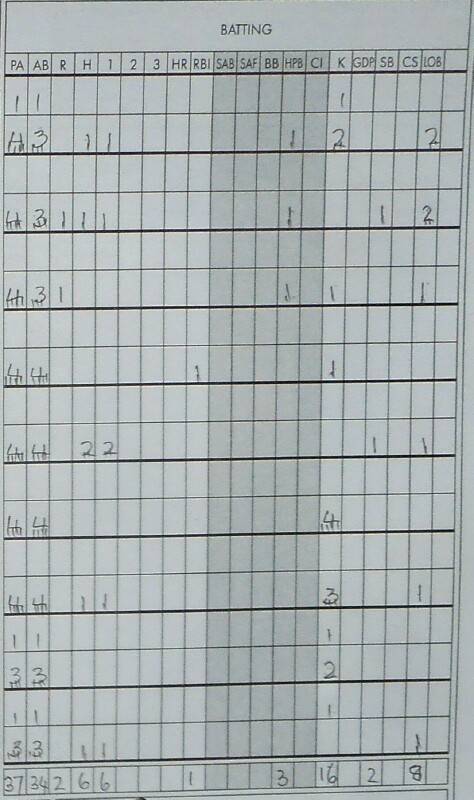 BATTING
PA AB R H 1 2 3 HR RBI SAB SAF BB HPB CI K GDP SB CS LOB
1 1 1
4 3 1 1 1 2 2
4 3 1 1 1 1 1 2
4 3 1 1 1 1
4 4 1 1
4 4 2 2 1 1
4 4 4
4 4 1 1 3 1
1 1 1
3 3 2
1 1 1
3 3 1 1 1
37 34 2 6 6 1 3 16 2 8